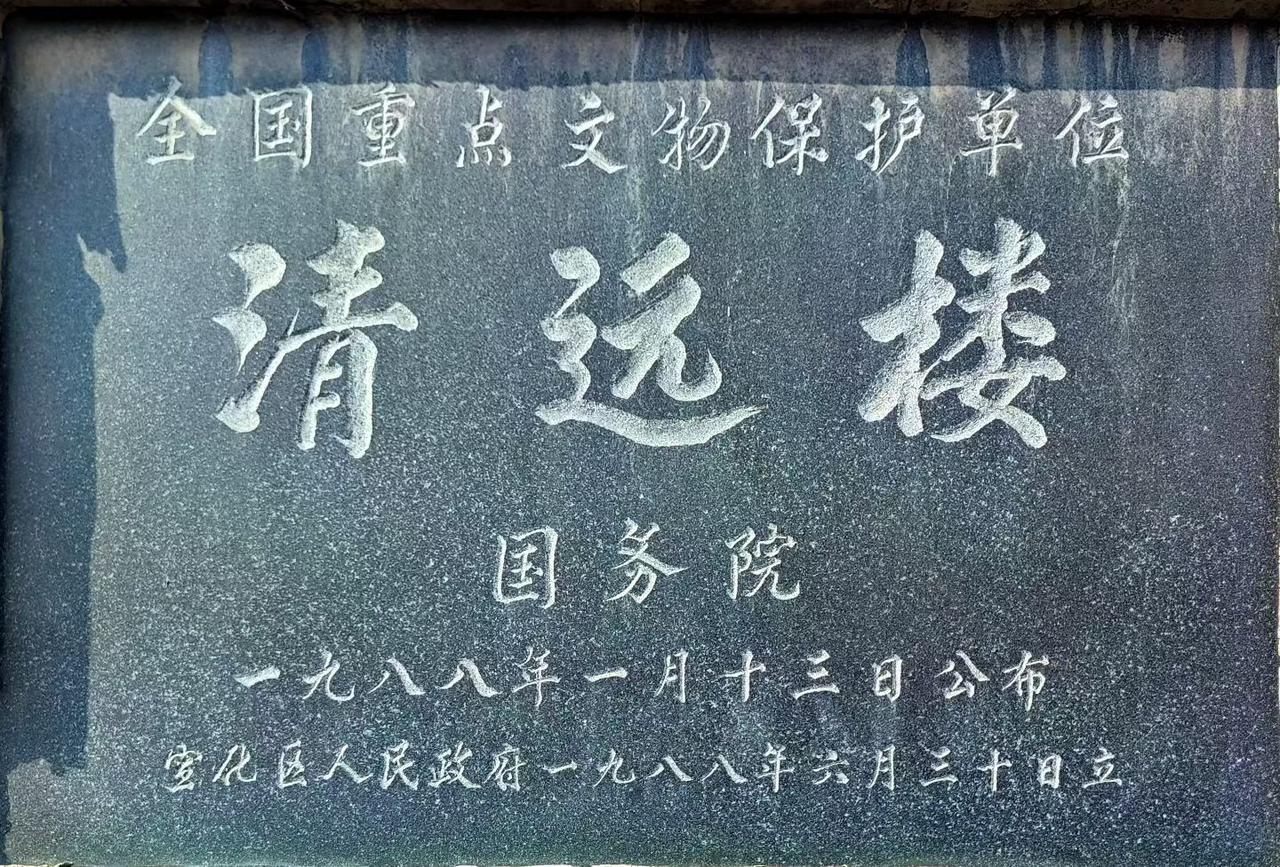 全国重点文物保护单位
清远楼
国务院
一九八八年一月十三日公布
宣化区人民政府一九八八年六月三十日立